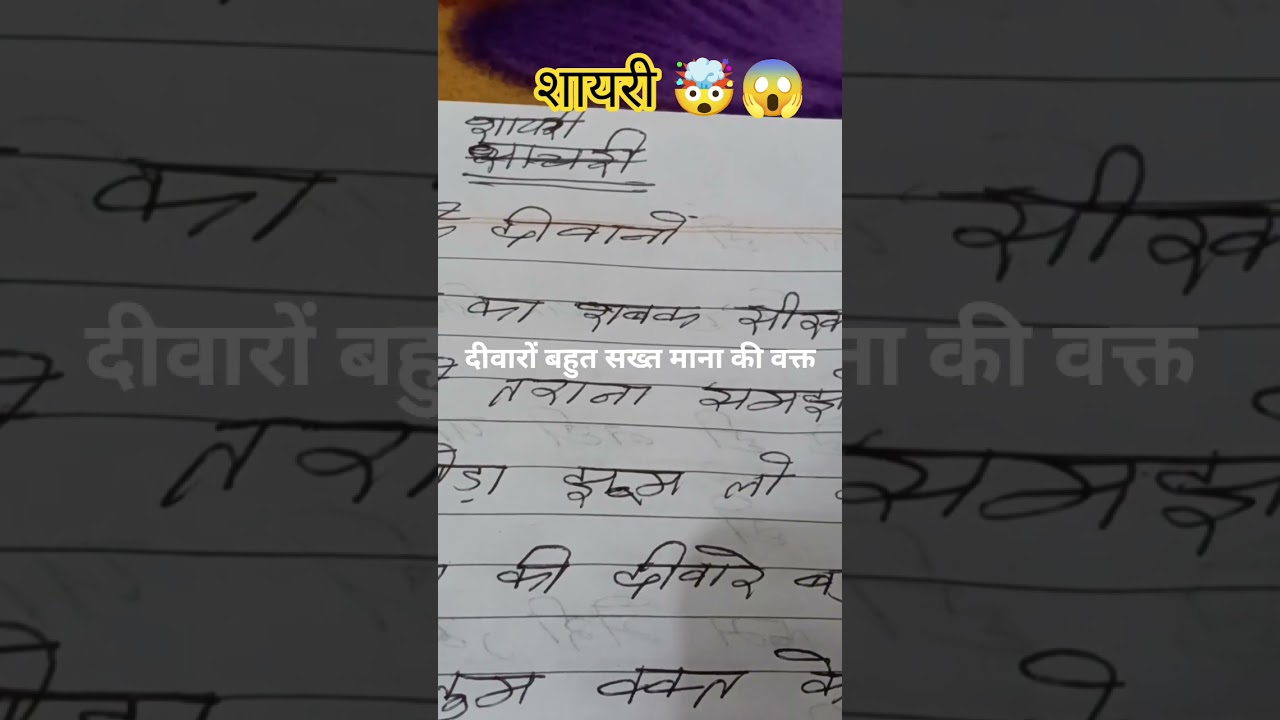 शायरी 🤯😱
शायरी
दीवानों
का शबक सीख
दीवारों बहुत सख्त माना की वक्त
तराना समझ
झूम लो
की दीवारे
वक्त के